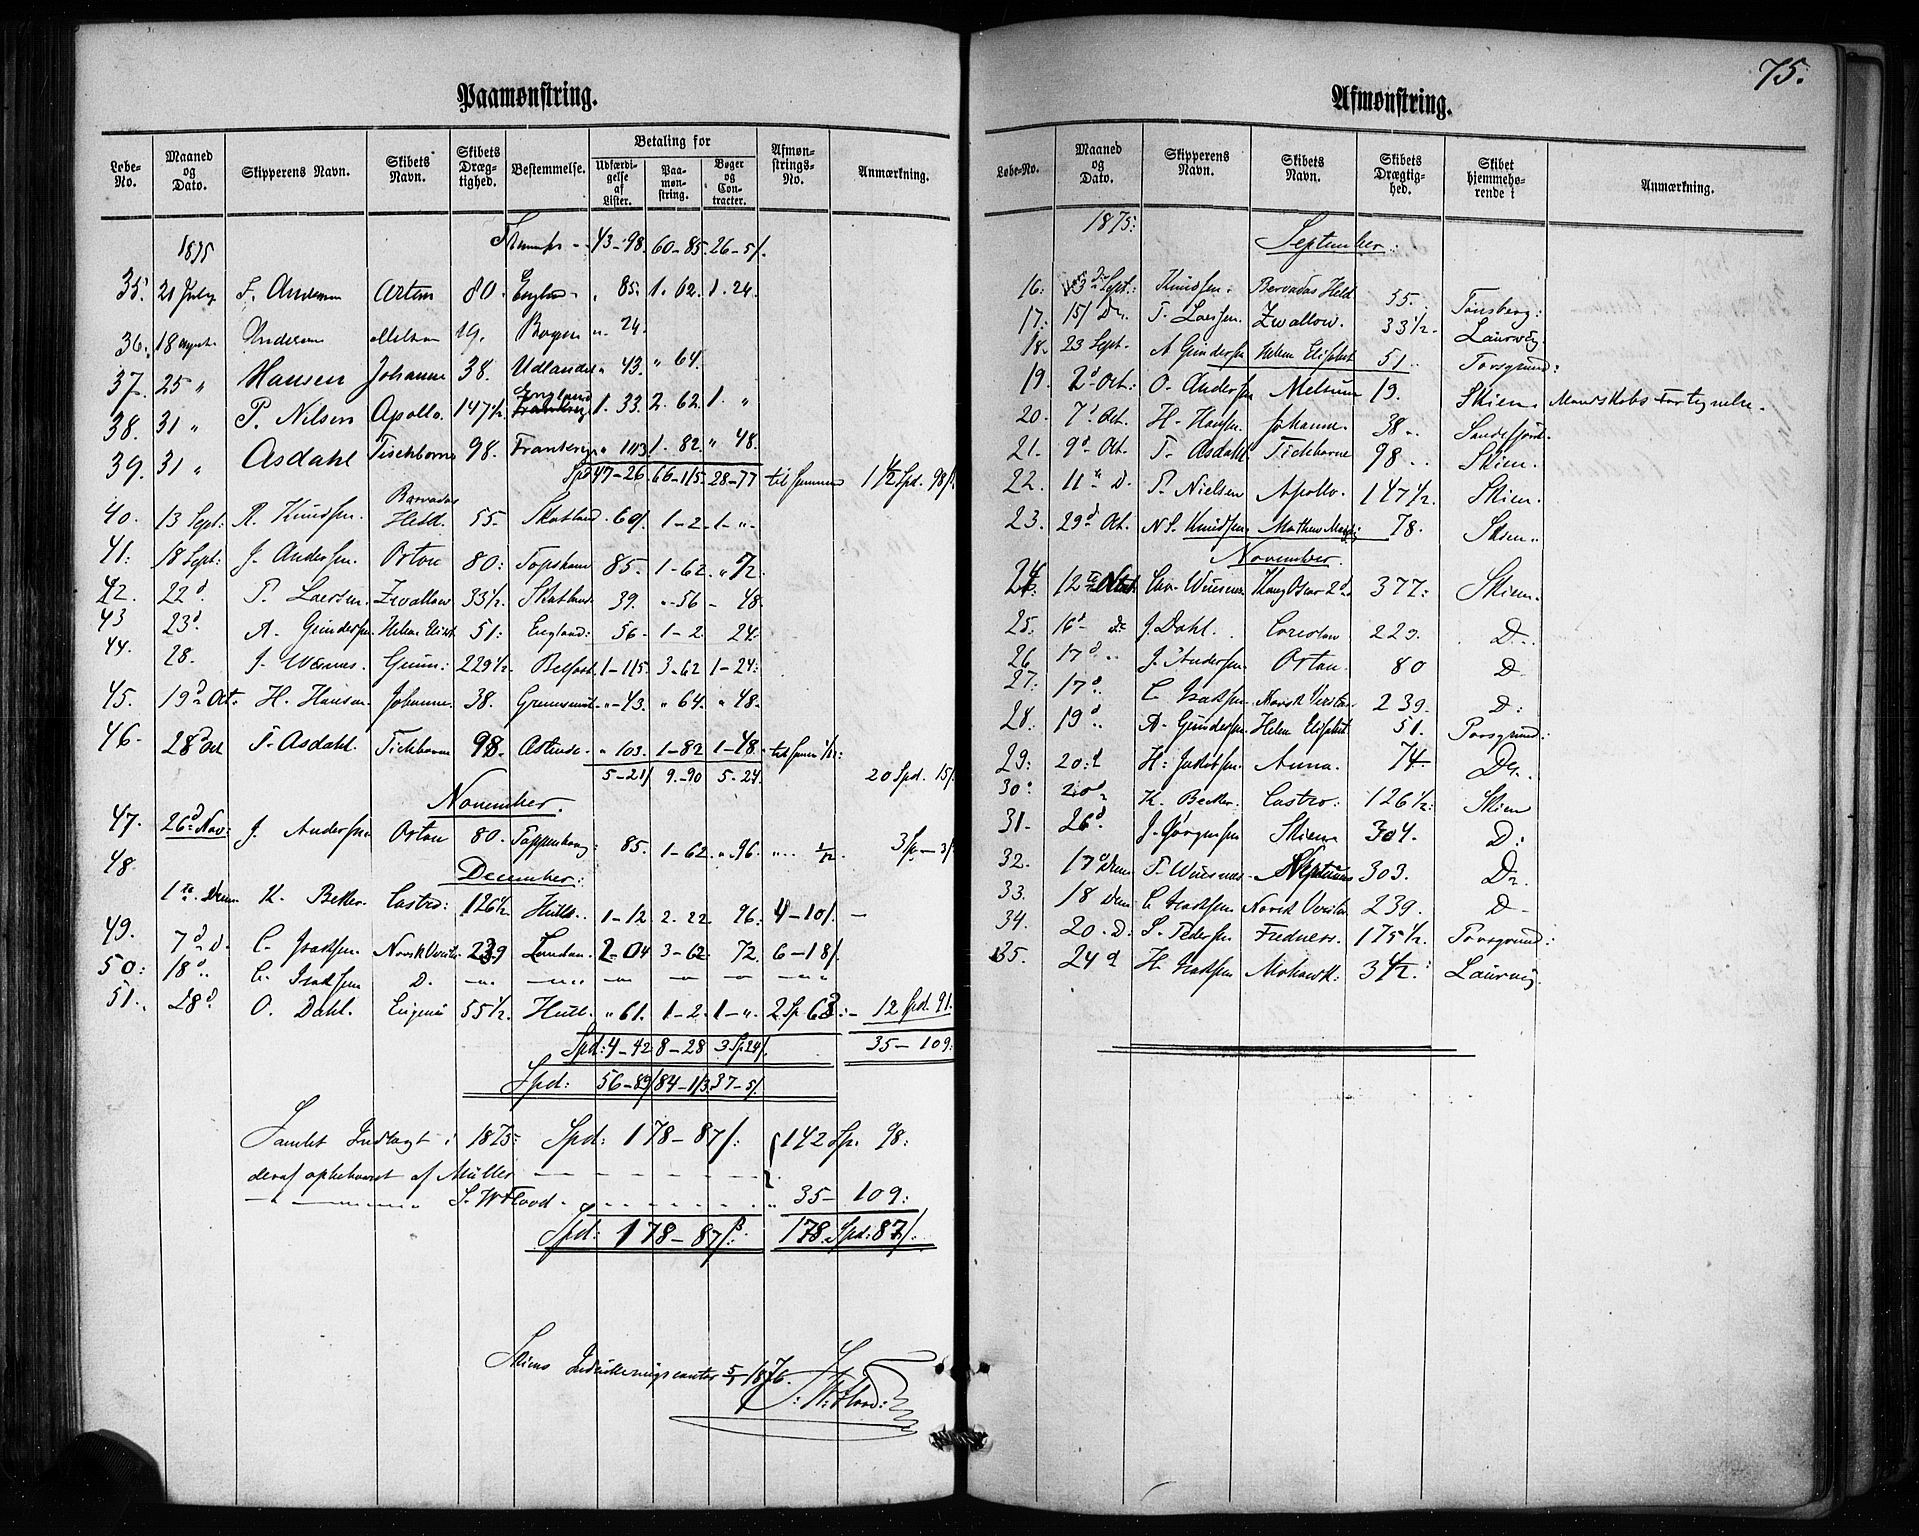 75.
Paamønstring.
Løbe-No. Maaned og Dato. Skipperens Navn. Skibets Navn. Skibets Dræg-tighed. Bestemmelse. Betaling for Udfærdi-gelse af Lister. Paa-mønstring. Bøger og Con-tracter. Afmøn-strings-No. Anmærkning.
1875 43-98. 60-85. 26-5/.
35. 21 July Andersen 80. 85. 1. 62. 1. 24.
36. 18 August Andersen 19. 24.
37. 25 " Hansen Johanne 38. Udlandet " 43. " 64.
38. 31 " P. Nilsen Apollo. 147 1/2 England 1. 33. 2. 62. 1. "
39. 31 " Asdahl Tischborne 98. Frankerig " 103 1. 82. " 48.
Spd 47-26. 66-115. 28-77
40. 13 Sept: R. Knudsen. Barvadas Held. 55. Skotland 60/. 1-2. 1-"-
41: 18 Sept: J. Andersen. Orton 80: Topshann 85. 1-62. " 72.
42. 22d. T. Laersen. Zwallow. 33 1/2. Skotland. 39. "-56 - 48.
43 23d. A. Gundersen. Helene Elisabt. 51: England: 56. 1-2. 24.
44. 28. J. Wærnes. 229 1/2. Belfast. 1-115. 3-62 1-24:
45. 19d Oct. H. Hansen. Johanne. 38. "-43. " 64. " 48.
46. 28d Oct T. Asdahl. Tichborne 98. " 103. 1-82 1-48.
5-21/. 9-90 5-24. 20 Spd. 15/.
November.
47. 26d Nov: J. Andersen Orton 80. 85. 1-62. " 96.
December:
48. 1ste Decem K. Bekker. Castro: 126 1/2. Hull. 1-12. 2. 22. 96. 4-10/. -
49. 7d D. C. Isaksen Norsk Veritas 239 London. 2-04 3-62 72. 6-18/.
50: 18d " C. Isaksen D.
51. 28d. O. Dahl. Eugenie 55 1/2. Hull. " 61. 1-2. 1-". 2 Sp 63:- 12 Spd. 91.
Spd: 4-42 8-28 3 Sp 24/. 35-109:
Spd: 56-89/ 84-113. 37-5/.
Samlet Indtægt i 1875: Spd: 178-87/: 142 Sp. 98:
deraf opkebæret af Müller
S. W Flood. 35-109:
Spd: 178-87/: 178. Spd: 87/.
Skiens Indrulleringscontor 5/1 1876.
S. W. Flood:
Afmønstring.
Løbe-No. Maaned og Dato. Skipperens Navn. Skibets Navn. Skibets Drægtig-hed. Skibet hjemmehø-rende i Anmærkning.
1875: September:
16: 13 Sept: Knudsen. Barvadas Held. 55. Tønsberg:
17: 15/ Do. T. Laersen. Zwallow. 33 1/2. Laurvig.
18. 23 Sept. A Gundersen Helene Elisabt 51. Porsgrund:
19. 2d Oct: O. Andersen Meltum 19. Skien. Mandskabs Fortegnelse.
20. 7d Oct. H. Hansen. Johanne. 38.. Sandefjord.
21. 9d Oct. T. Asdahl. Tichborne 98.. Skien.
22. 11te D. P. Nielsen Apollo. 147 1/2. Skien.
23. 29d Oct. N S. Knudsen 78. Skien..
November.
24. 12te Wiersnes Kong Oscar 2d. 377: Skien.
25. 16d- D J. Dahl. 223. D.
26 17d.. J. Andersen. Orton. 80 D.
27: 17d.. C. Isaksen. Norsk Veritas. 239. D:
28. 19d.. A. Gundersen. Helene Elisabt. 51. Porsgrund:
29: 20:d H. Jakobsen. Anna. 74. Do.
30: 20d K. Bekker. Castro: 126 1/2: Skien
31. 26d. J. Jørgensen Skien 304. D:
32. 17d Decem T. Wiersnes. Neptunus 303. Do.
33. 18 Dem C. Isaksen Norsk Veritas. 239. D-
34. 20. D. S. Pedersen Fredness. 175 1/2. Porsgrund:
35. 24d H. Isaksen Mohawk: 34 1/2.: Laurvig.